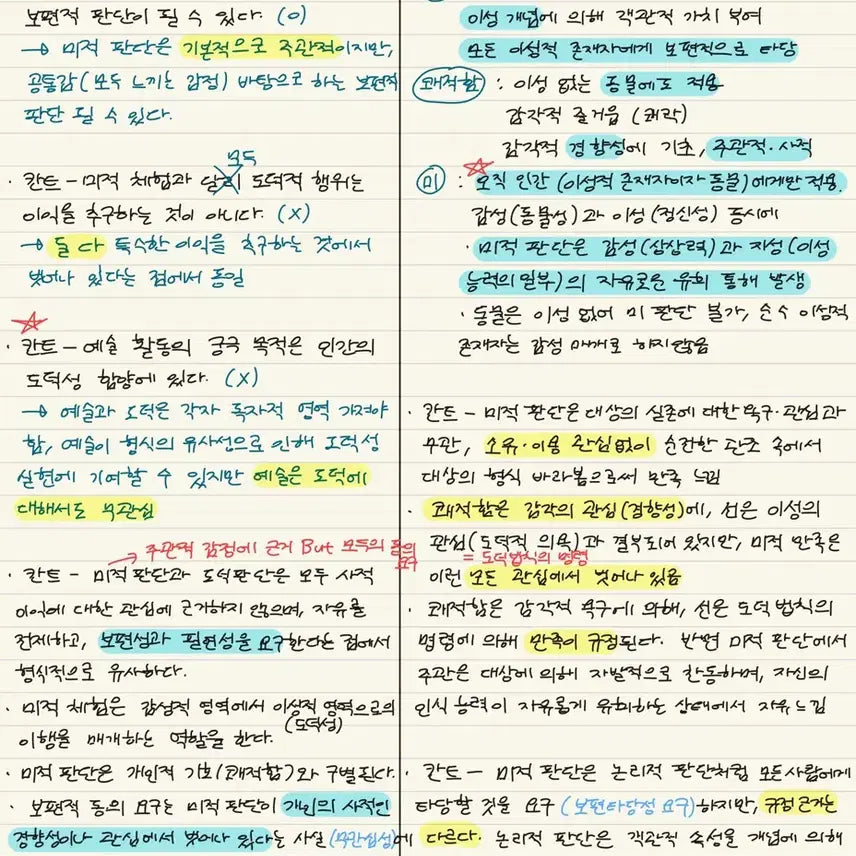 보편적 판단이 될 수 있다. (O)
→ 미적 판단은 기본적으로 주관적이지만,
공통감(모두 느끼는 감정) 바탕으로 하는 보편적
판단 될 수 있다.
모두
· 칸트 - 미적 체험과 달리 도덕적 행위는
이익을 추구하는 것이 아니다. (X)
→ 둘 다 특수한 이익을 추구하는 것에서
벗어나 있다는 점에서 동일
· 칸트 - 예술 활동의 궁극 목적은 인간의
도덕성 함양에 있다. (X)
→ 예술과 도덕은 각자 독자적 영역 가져야
함, 예술이 형식의 유사성으로 인해 도덕성
실현에 기여할 수 있지만 예술은 도덕에
대해서도 무관심
→ 주관적 감정에 근거 But 모두의 동의
요구
· 칸트 - 미적 판단과 도덕판단은 모두 사적
이익에 대한 관심에 근거하지 않으며, 자유를
전제하고, 보편성과 필연성을 요구한다는 점에서
형식적으로 유사하다.
· 미적 체험은 감성적 영역에서 이성적 영역으로의
(도덕성)
이행을 매개하는 역할을 한다.
· 미적 판단은 개인적 기호(쾌적함)와 구별된다.
· 보편적 동의 요구는 미적 판단이 개인의 사적인
경향성이나 관심에서 벗어나 있다는 사실 (무관심성)에
이성 개념에 의해 객관적 가치 부여
모든 이성적 존재자에게 보편적으로 타당
쾌적함 : 이성 없는 동물에도 적용
감각적 즐거움 (쾌락)
감각적 경향성에 기초, 주관적·사적
미 : 오직 인간 (이성적 존재자이자 동물)에게만 적용,
감성(동물성)과 이성(정신성) 동시에
· 미적 판단은 감성(상상력)과 지성(이성
능력의 일부)의 자유로운 유희 통해 발생
· 동물은 이성 없어 미 판단 불가, 순수 이성적
존재자는 감성 매개로 하지않음
· 칸트 - 미적 판단은 대상의 실존에 대한 욕구·관심과
무관, 소유·이용 관심없이 순전한 관조 속에서
대상의 형식 바라봄으로써 만족 느낌
· 쾌적함은 감각의 관심(경향성)에, 선은 이성의
관심(도덕적 의욕)과 결부되어 있지만, 미적 만족은
= 도덕법칙의 명령
이런 모든 관심에서 벗어나 있음
· 쾌적함은 감각적 욕구에 의해, 선은 도덕 법칙의
명령에 의해 만족이 규정된다. 반면 미적 판단에서
주관은 대상에 의해 자발적으로 감동하며, 자신의
인식 능력이 자유롭게 유희하는 상태에서 자유 느낌
· 칸트 - 미적 판단은 논리적 판단처럼 모든사람에게
타당할 것을 요구 (보편타당성 요구)하지만, 규정 근거는
다르다. 논리적 판단은 객관적 속성을 개념에 의해